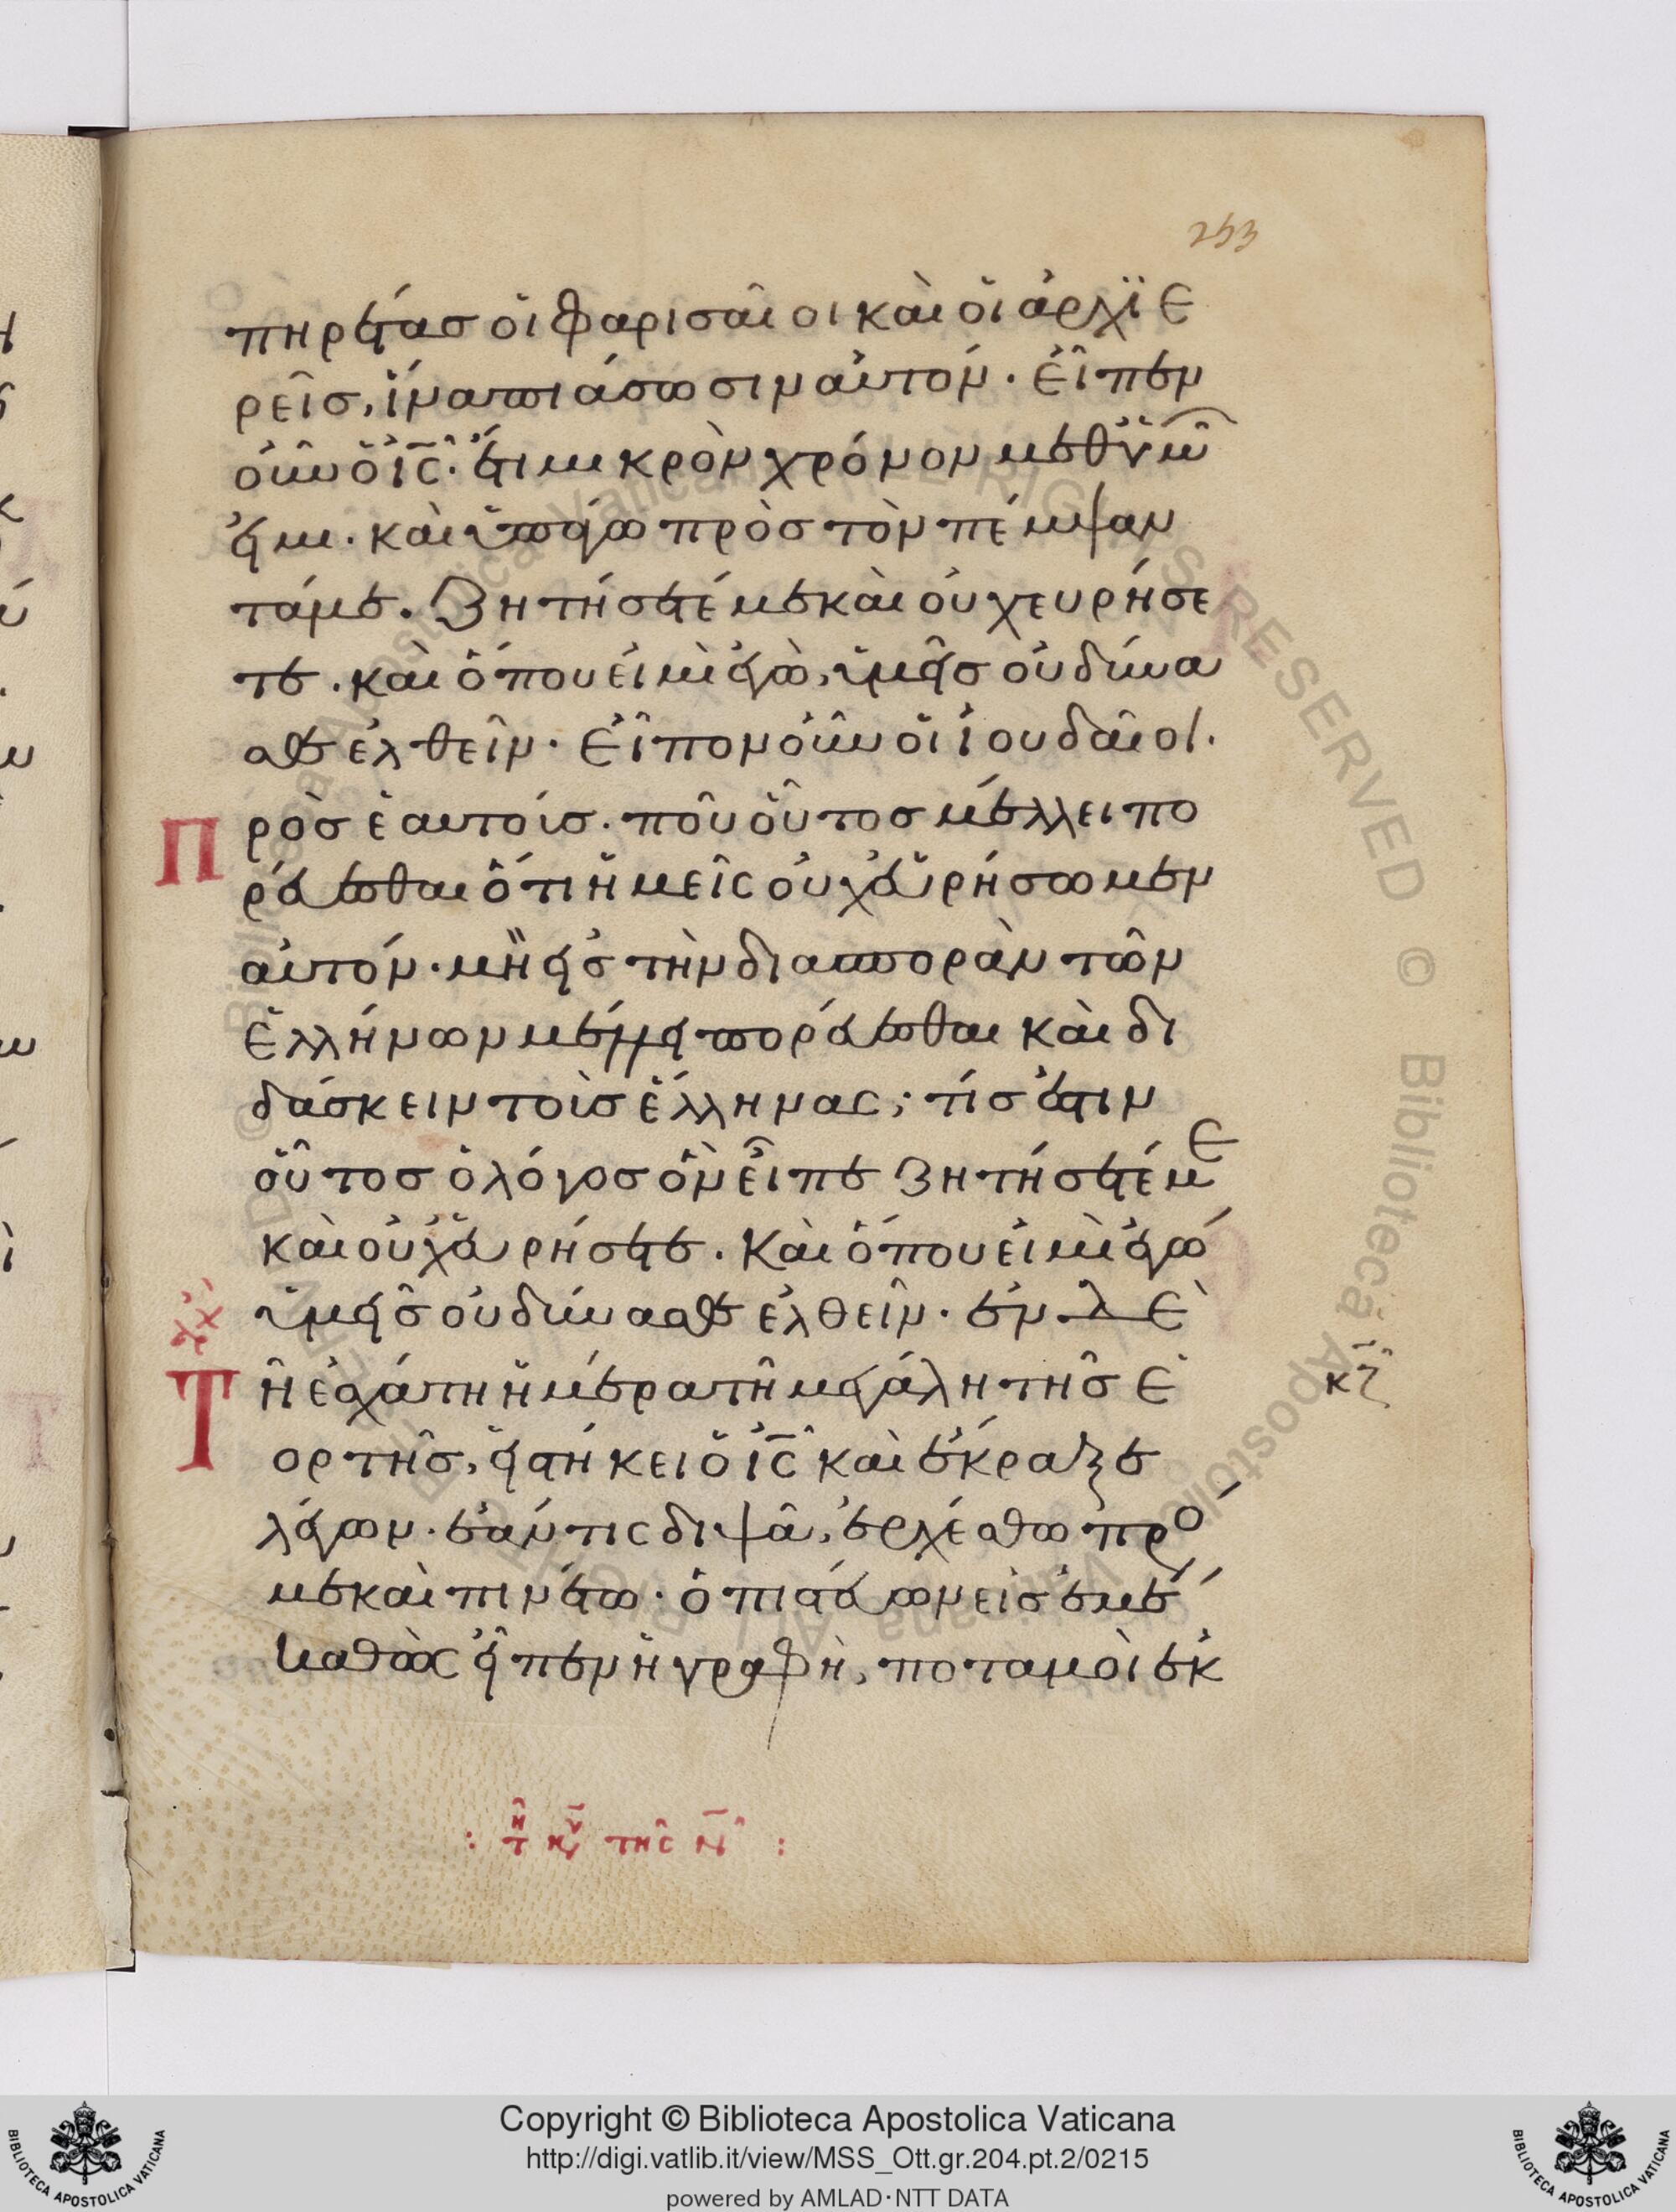 253
πηρέτας οἱ φαρισαῖοι καὶ οἱ ἀρχϊε
ρεῖς, ἵνα πιάσωσιν αὐτόν. εἶπεν
οὖν ὁ ις̅. ἔτι μικρὸν χρόνον μεθ' ὑμῶ
εἰμι. καὶ ὑπάγω πρὸς τὸν πέμψαν
τά με. Ζητήσετέ με καὶ οὐχ εὑρήσε
τε. καὶ ὅπου εἰμὶ ἐγὼ, ὑμεῖς οὐ δύνα
σθε ἐλθεῖν. εἶπον οὖν οἱ ἰουδαῖοι.
Πρὸς ἑαυτούς. ποῦ οὗτος μέλλει πο
ρεύεσθαι ὅτι ἡμεῖς οὐχ εὑρήσωμεν
αὐτόν. μὴ εἰς τὴν διασποράν τῶν
ἑλλήνων μέλλει πορεύεσθαι καὶ δι
δάσκειν τοὺς ἕλληνας; τίς ἐστιν
οὗτος ὁ λόγος ὃν εἶπε Ζητήσετέ με
καὶ οὐχ εὑρήσετε. Καὶ ὅπου εἰμὶ ἐγώ
ὑμεῖς οὐ δύνασθε ἐλθεῖν. ἐν δὲ
Τῆ ἐσχάτη ἡμέρα τῆ μεγάλη τῆς ἑ
κζ
ορτῆς, εἱστήκει ὁ ις̅ καὶ ἔκραξε
λέγων. ἐάν τις διψᾶ, ἐρχέσθω πρό
με καὶ πινέτω. ὁ πιστεύων εἰς ἐμέ
καθὼς εἶπεν ἡ γραφὴ, ποταμοὶ ἐκ
: τῆ κυ της ν :
Copyright © Biblioteca Apostolica Vaticana
http://digi.vatlib.it/view/MSS_Ott.gr.204.pt.2/0215
powered by AMLAD·NTT DATA